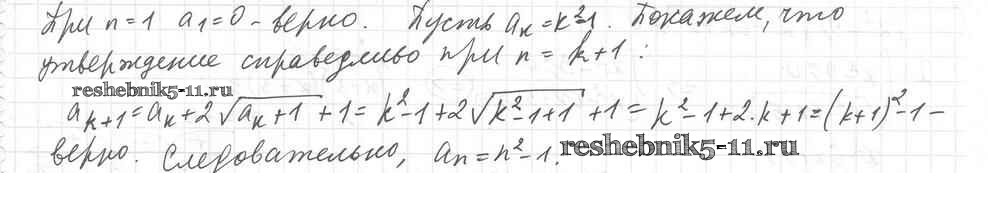 При n=1 a₁=0 - верно. Пусть aₖ=k²-1. Покажем, что
утверждение справедливо при n=k+1:
reshebnik5-11.ru
aₖ₊₁=aₖ+2√(aₖ+1)+1=k²-1+2√(k²-1+1)+1=k²-1+2·k+1=(k+1)²-1-
верно. Следовательно, aₙ=n²-1.
reshebnik5-11.ru